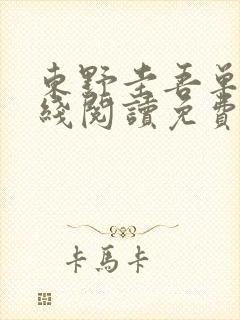 東野圭吾單
綫閱讀免費
卡馬卡